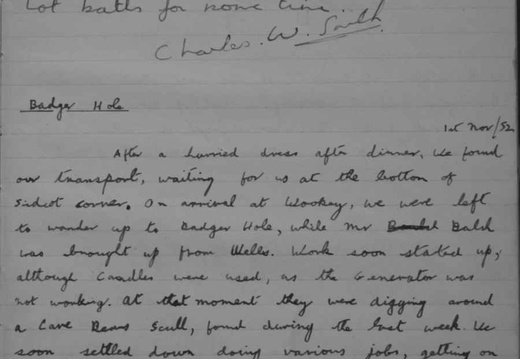 hot baths for some time.
Charles. W. Smith.
Badger Hole
1st Nov/52
After a hurried dress after dinner, We found
our transport, waiting for us at the bottom of
Sidcot corner. On arrival at Wookey, we were left
to wander up to Badger Hole, while Mr Balch
was brought up from Wells. Work soon started up,
although Candles were used, as the Generator was
not working. At that moment they were digging around
a Cave Bears Scull, found during the last week. We
soon settled down doing various jobs, getting on